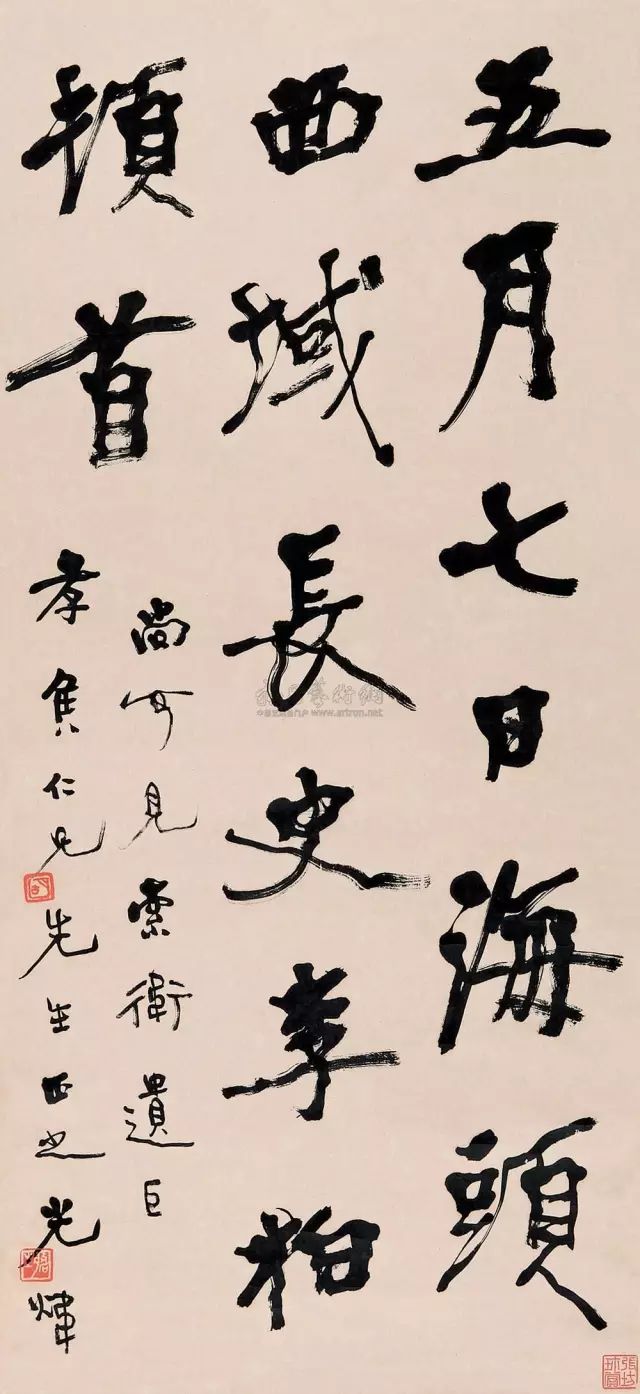 五月七日海頭
西域長史李柏
頓首
尚可見索衛遺
孝侯仁兄先生正之光煒
www.artron.net